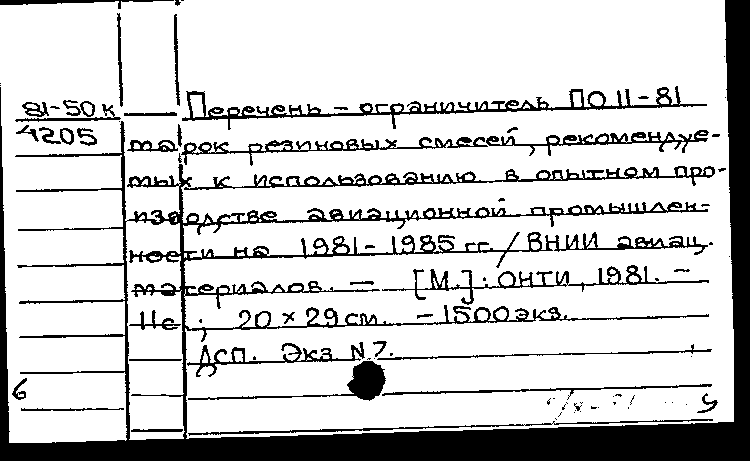 81-50к Перечень - ограничитель ПО 11-81
4205 марок резиновых смесей, рекомендуе-
мых к использованию в опытном про-
изводстве авиационной промышлен-
ности на 1981-1985 гг. / ВНИИ авиац.
материалов. — [М.]: ОНТИ, 1981. -
11с.; 20 × 29 см. - 1500 экз.
Дсп. Экз. N 7.
6